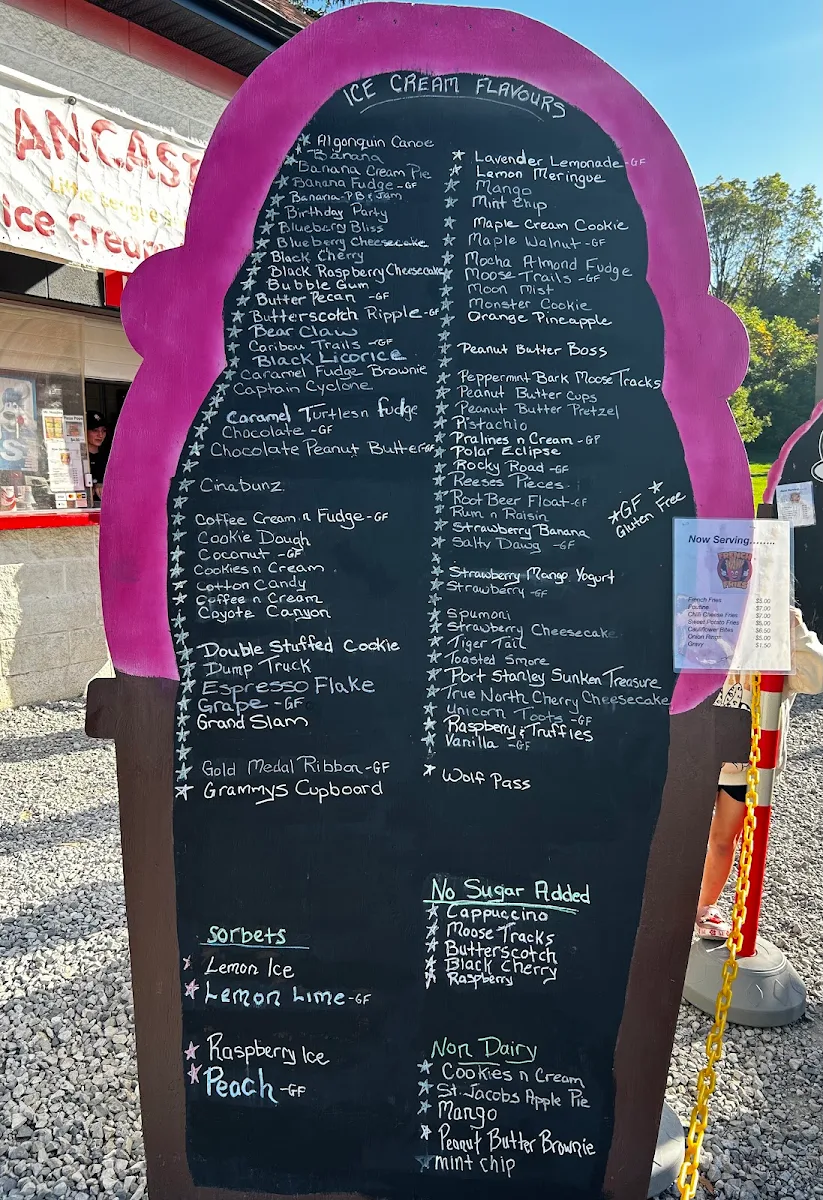 ANCAST
Ice Cream
ICE CREAM FLAVOURS
Algonquin Canoe
Banana
Banana Cream Pie
Banana Fudge -GF
Banana PB & Jam
Birthday Party
Blueberry Bliss
Blueberry Cheesecake
Black Cherry
Black Raspberry Cheesecake
Bubble Gum
Butter Pecan -GF
Butterscotch Ripple -GF
Bear Claw
Caribou Trails -GF
Black Licorice
Caramel Fudge Brownie
Captain Cyclone
Caramel Turtlesn fudge
Chocolate -GF
Chocolate Peanut Butter GF
Cinabunz
Coffee Cream n Fudge -GF
Cookie Dough
Coconut -GF
Cookies n Cream
Cotton Candy
Coffee n Cream
Coyote Canyon
Double Stuffed Cookie
Dump Truck
Espresso Flake
Grape -GF
Grand Slam
Gold Medal Ribbon -GF
Grammys Cupboard
Lavender Lemonade -GF
Lemon Meringue
Mango
Mint Chip
Maple Cream Cookie
Maple Walnut -GF
Mocha Almond Fudge
Moose Trails -GF
Moon Mist
Monster Cookie
Orange Pineapple
Peanut Butter Boss
Peppermint Bark Moose Tracks
Peanut Butter Cups
Peanut Butter Pretzel
Pistachio
Pralines n Cream -GF
Polar Eclipse
Rocky Road -GF
Reeses Pieces
Root Beer Float -GF
Rum n Raisin
Strawberry Banana
Salty Dawg -GF
Strawberry Mango Yogurt
Strawberry -GF
Spumoni
Strawberry Cheesecake
Tiger Tail
Toasted Smore
Port Stanley Sunken Treasure
True North Cherry Cheesecake
Unicorn Toots -GF
Raspberry & Truffles
Vanilla -GF
Wolf Pass
GF
Gluten Free
Now Serving........
French Fries $5.00
Poutine $7.00
Chilli Cheese Fries $7.00
Sweet Potato Fries $6.00
Cauliflower Bites $6.50
Onion Rings $5.00
Gravy $1.50
Sorbets
Lemon Ice
Lemon Lime -GF
Raspberry Ice
Peach -GF
No Sugar Added
Cappuccino
Moose Tracks
Butterscotch
Black Cherry
Raspberry
Non Dairy
Cookies n Cream
St. Jacobs Apple Pie
Mango
Peanut Butter Brownie
mint chip